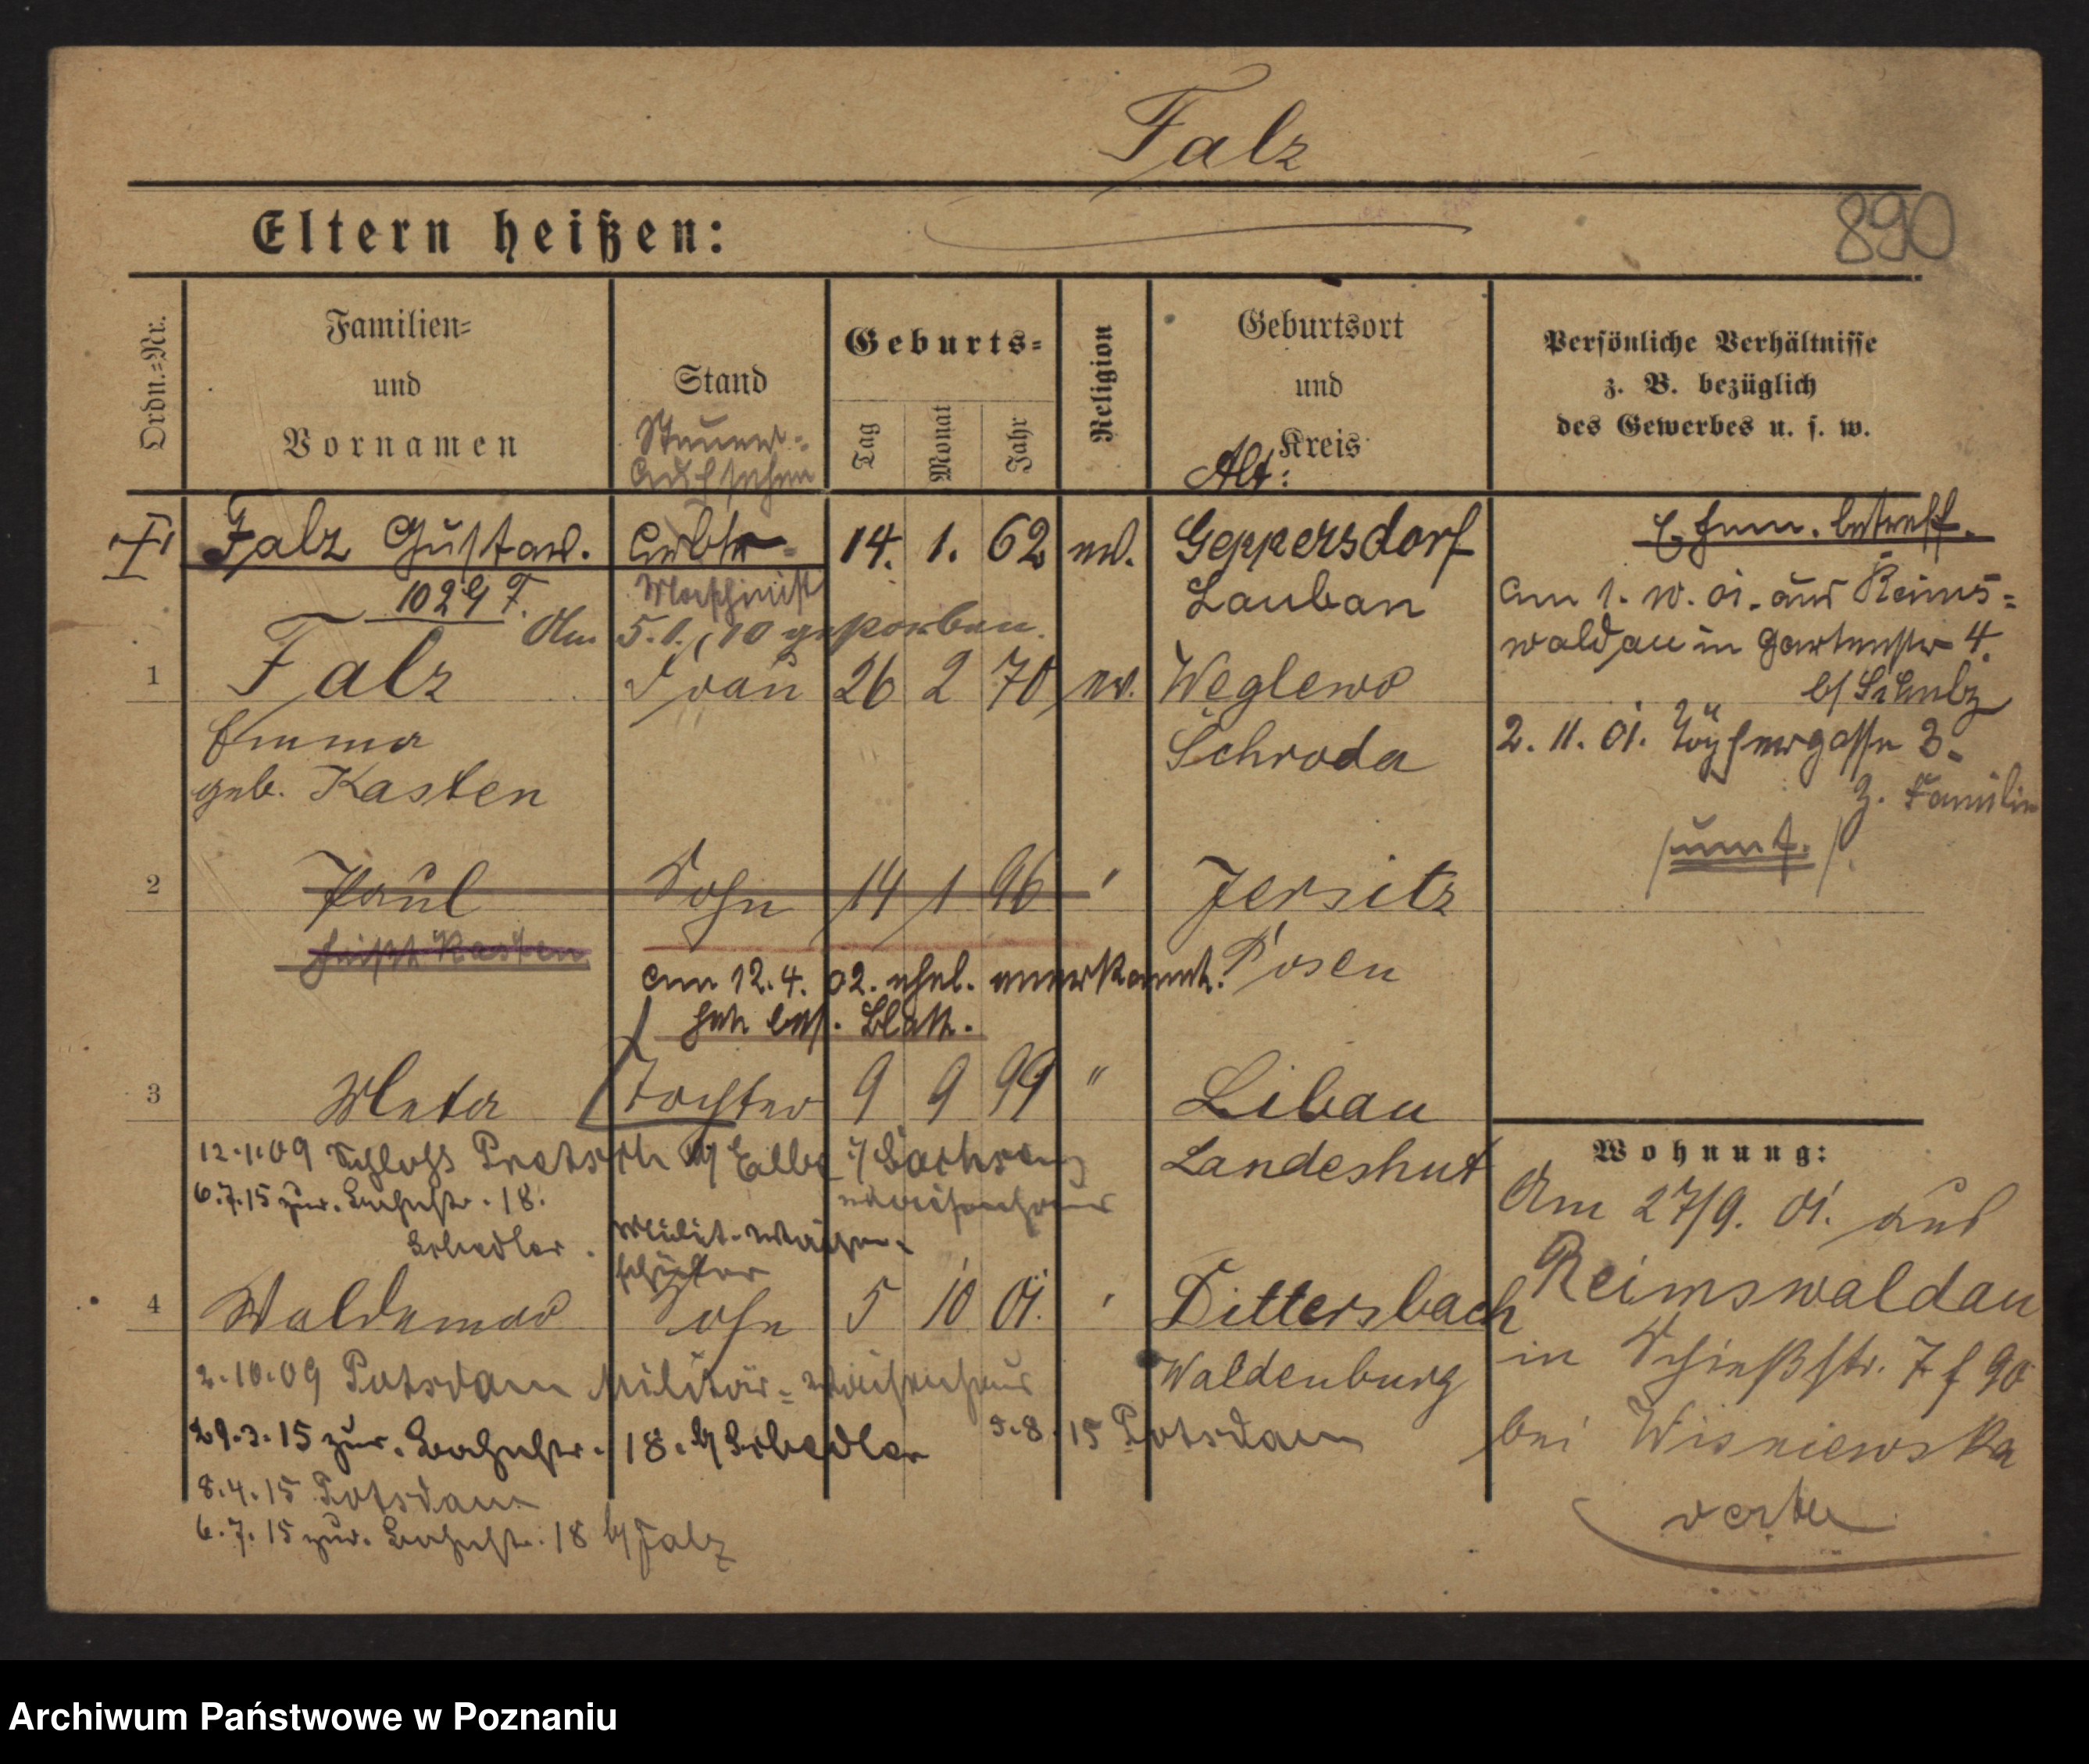 Falz
890
Eltern heißen:
Ordn.=Nr.
Familien=
und
Vornamen
Stand
Geburts=
Tag
Monat
Jahr
Religion
Geburtsort
und
Kreis
Persönliche Verhältnisse
z. B. bezüglich
des Gewerbes u. s. w.
Steuer=
aufseher
Alt:
Falz Gustav. Arbtr 14. 1. 62 ev. Geppersdorf
Lauban
Maschinist
Am 5.1.10 gestorben.
1 Falz Frau 26 2 70 ev. Weglewo
Emma
Schroda
geb. Kasten
Ehem. betreff.
am 1. 10. 01. aus Reims=
waldau in Gartenstr 4.
b/ Schulz
2. 11. 01. Töpfergasse 3.
z. Familie
2 Paul Sohn 14 1 96 " Jersitz
heißt Kasten
Posen
am 12.4.02. ehel. anerkannt.
hat bes. Blatt.
3 Meta Tochter 9 9 99 " Libau
Landeshut
12.1.09 Schloss Pretzsch a/ Elbe i/ Sachsen
Waisenhaus
6.7.15 zur. Bahnstr. 18.
Milit. Waisen=
4 Waldemar Sohn 5 10 01. " Dittersbach
Waldenburg
2.10.09 Potsdam Militär=Waisenhaus
29.3.15 zur. Bahnstr. 18. b/
5.8.15 Potsdam
8.4.15 Potsdam
6.7.15 zur. Bahnstr. 18 b/ Falz
Wohnung:
Am 27/9. 01. aus
Reimswaldau
in Schießstr. 7
bei Wisniewska
verte
Archiwum Państwowe w Poznaniu